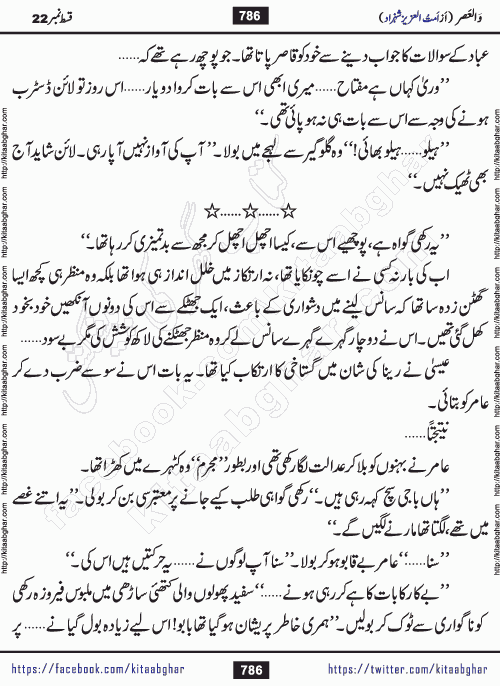 وَالعَصر (اَز اَمتُ العزیز شہزاد)
786
قسط نمبر 22
عباد کے سوالات کا جواب دینے سے خود کو قاصر پاتا تھا۔ جو پوچھ رہے تھے کہ......
”وریٰ کہاں ہے مفتاح......میری ابھی اس سے بات کراوٴ دو یار......اس روز تو لائن ڈسٹرب
ہونے کی وجہ سے اس سے بات ہی نہ ہو پائی تھی۔“
”ہیلو......ہیلو بھائی!“ وہ گلوگیر سے لہجے میں بولا۔ ”آپ کی آواز نہیں آ پا رہی۔ لائن شاید آج
بھی ٹھیک نہیں۔“
☆......☆......☆
”یہ رکھی گواہ ہے، پوچھیے اس سے، کیسا اچھل اچھل کر مجھ سے بدتمیزی کر رہا تھا۔“
اب کی بار نہ کسی نے اسے چونکایا تھا، نہ ارتکاز میں خلل انداز ہی ہوا تھا بلکہ وہ منظر ہی کچھ ایسا
گھٹن زدہ سا تھا کہ سانس لینے میں دشواری کے باعث، ایک جھٹکے سے اس کی دونوں آنکھیں خود بخود
کھل گئی تھیں۔ اس نے دو چار گہرے گہرے سانس لے کر وہ منظر جھٹکنے کی لاکھ کوشش کی مگر بے سود......
عیسیٰ نے رینا کی شان میں گستاخی کا ارتکاب کیا تھا۔ یہ بات اس نے سو سے ضرب دے کر
عامر کو بتائی۔
نتیجتاً......
عامر نے بہنوں کو بلا کر عدالت لگا رکھی تھی اور بطور ”مجرم“ وہ کٹہرے میں کھڑا تھا۔
”ہاں باجی سچ کہہ رہی ہیں۔“ رکھی گواہی طلب کیے جانے پر معتبر سی بن کر بولی۔ ”یہ اتنے غصے
میں تھے، لگتا تھا مارنے لگیں گے۔“
”سنا......“ عامر بے قابو ہو کر بولا۔ ”سنا آپ لوگوں نے...... یہ حرکتیں ہیں اس کی۔“
”بے کار کا بات کا ہے کر رہی ہونے......“ سفید پھولوں والی کتھئی ساڑھی میں ملبوس فیروزہ رکھی
کو ناگواری سے ٹوک کر بولیں۔ ”ہمری خاطر پریشان ہو گیا تھا بابو! اس لیے زیادہ بول گیا نے...... پر
https://facebook.com/kitaabghar
786
https://twitter.com/kitaabghar
http://kitaabghar.com